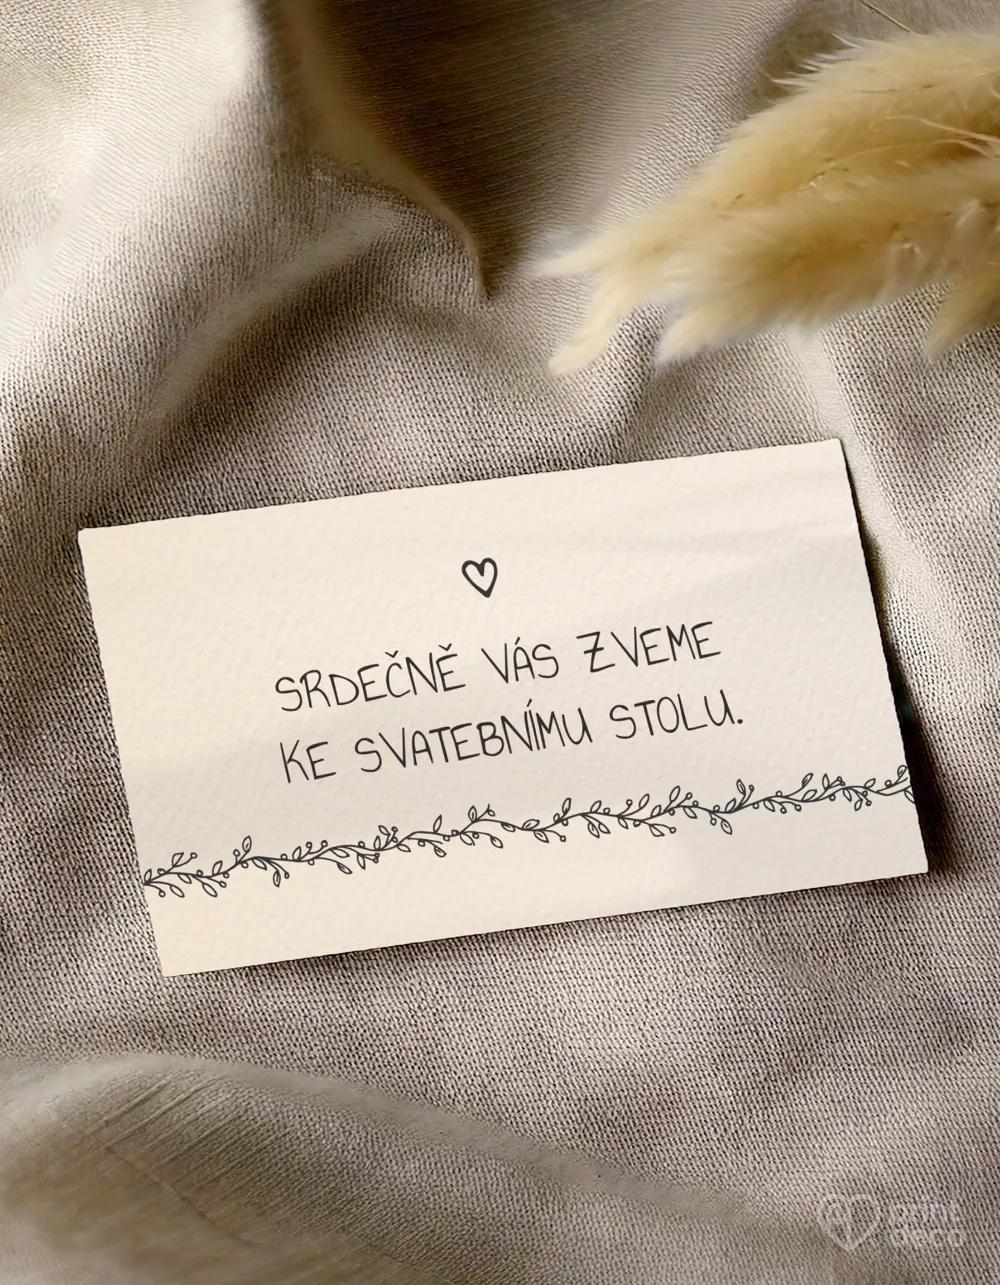 SRDEČNĚ VÁS ZVEME
KE SVATEBNÍMU STOLU.
print
deco